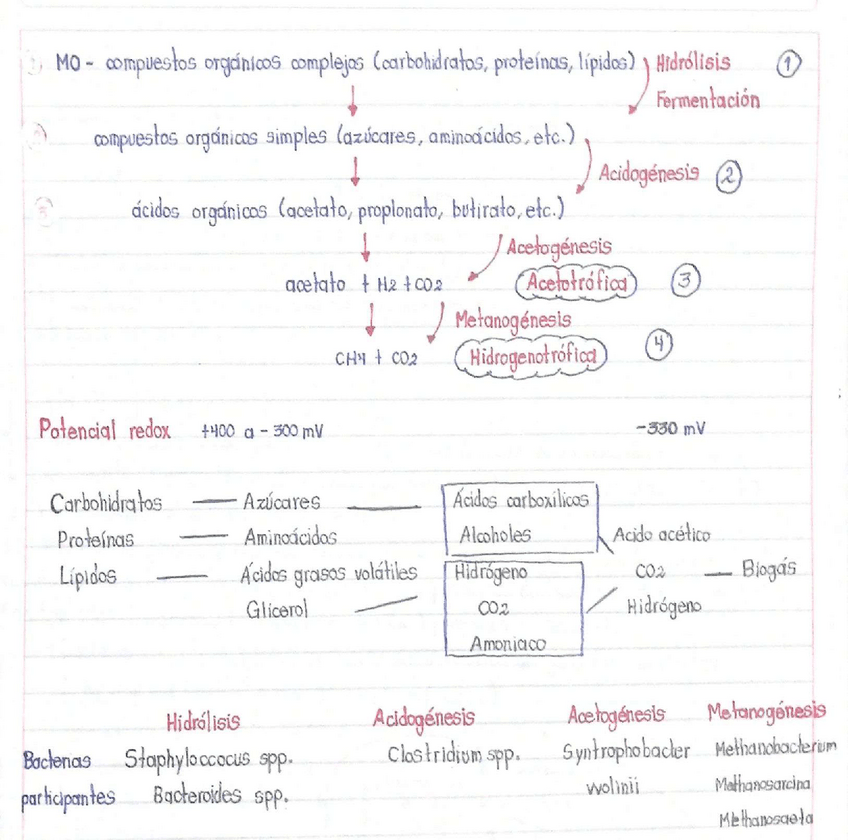 MO - compuestos orgánicos complejos (carbohidratos, proteínas, lípidos) Hidrólisis 1
Fermentación
compuestos orgánicos simples (azúcares, aminoácidos, etc.)
Acidogénesis 2
ácidos orgánicos (acetato, propionato, butirato, etc.)
Acetogénesis
acetato + H2 + CO2 Acetotrófica 3
Metanogénesis
CH4 + CO2 Hidrogenotrófica 4
Potencial redox +400 a -300 mV -330 mV
Carbohidratos — Azúcares — Ácidos carboxílicos
Proteínas — Aminoácidos Alcoholes Acido acético
Lípidos — Ácidos grasos volátiles Hidrógeno CO2 — Biogás
Glicerol CO2 Hidrógeno
Amoniaco
Hidrólisis Acidogénesis Acetogénesis Metanogénesis
Bacterias Staphyloccocus spp. Clostridium spp. Syntrophobacter Methanobacterium
participantes Bacteroides spp. wolinii Methanosarcina
Methanosaeta